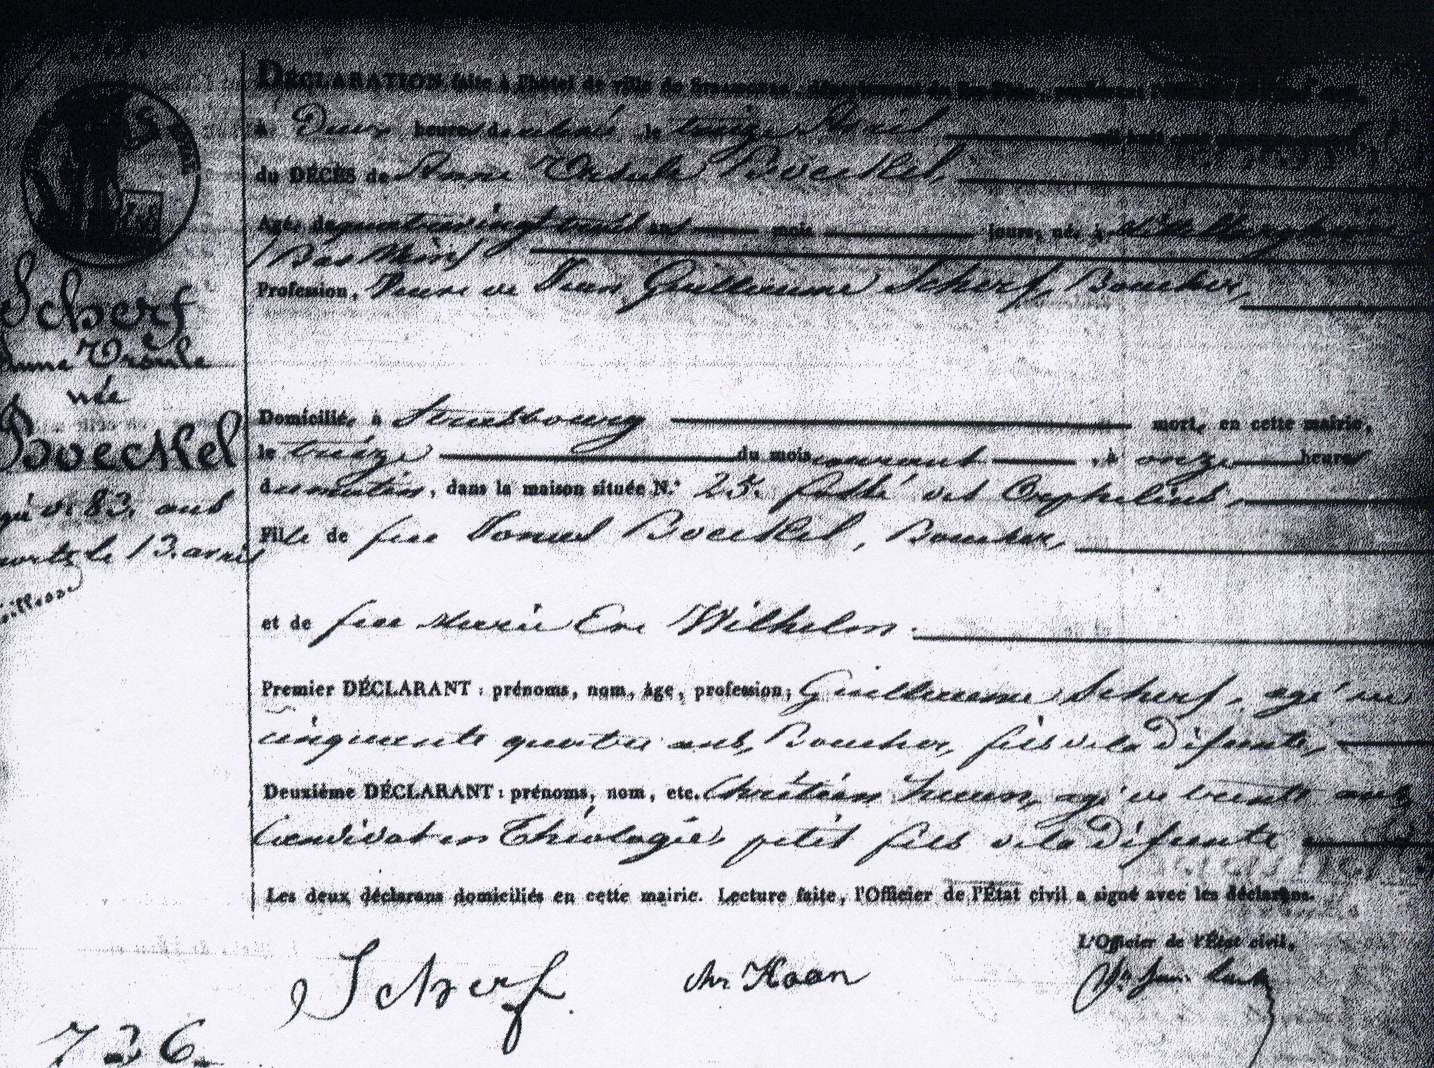 DÉCLARATION faite à l'hôtel de ville de STRASBOURG, département du Bas-Rhin,
à Deux heures de relevée le treize Avril
du DÉCÈS de Anne Ursule Boeckel,
Agée de quatrevingt trois ans mois jours, née à
(Bas Rhin)
Profession, Veuve de Jean Guillaume Scherf, Boucher,
Scherf
Anne Ursule
née
Boeckel
agée de 83 ans
morte le 13 avril
Domiciliée à Strasbourg morte en cette mairie,
le treize du mois courant, à onze heures
du matin, dans la maison située N.° 25. fossé des Orphelins,
Fille de feu Boeckel, Boucher,
et de feue Marie Eve Wilhelm.
Premier DÉCLARANT : prénoms, nom, âge, profession; Guillaume Scherf, agé de
cinquante quatre ans, Boucher, fils de la Défunte,
Deuxième DÉCLARANT : prénoms, nom, etc. Chrétien agé de trente ans
Candidat en Théologie, petit fils de la Défunte
Les deux déclarans domiciliés en cette mairie. Lecture faite, l'Officier de l'État civil a signé avec les déclarans.
L'Officier de l'État civil,
Scherf chr Haan
736.